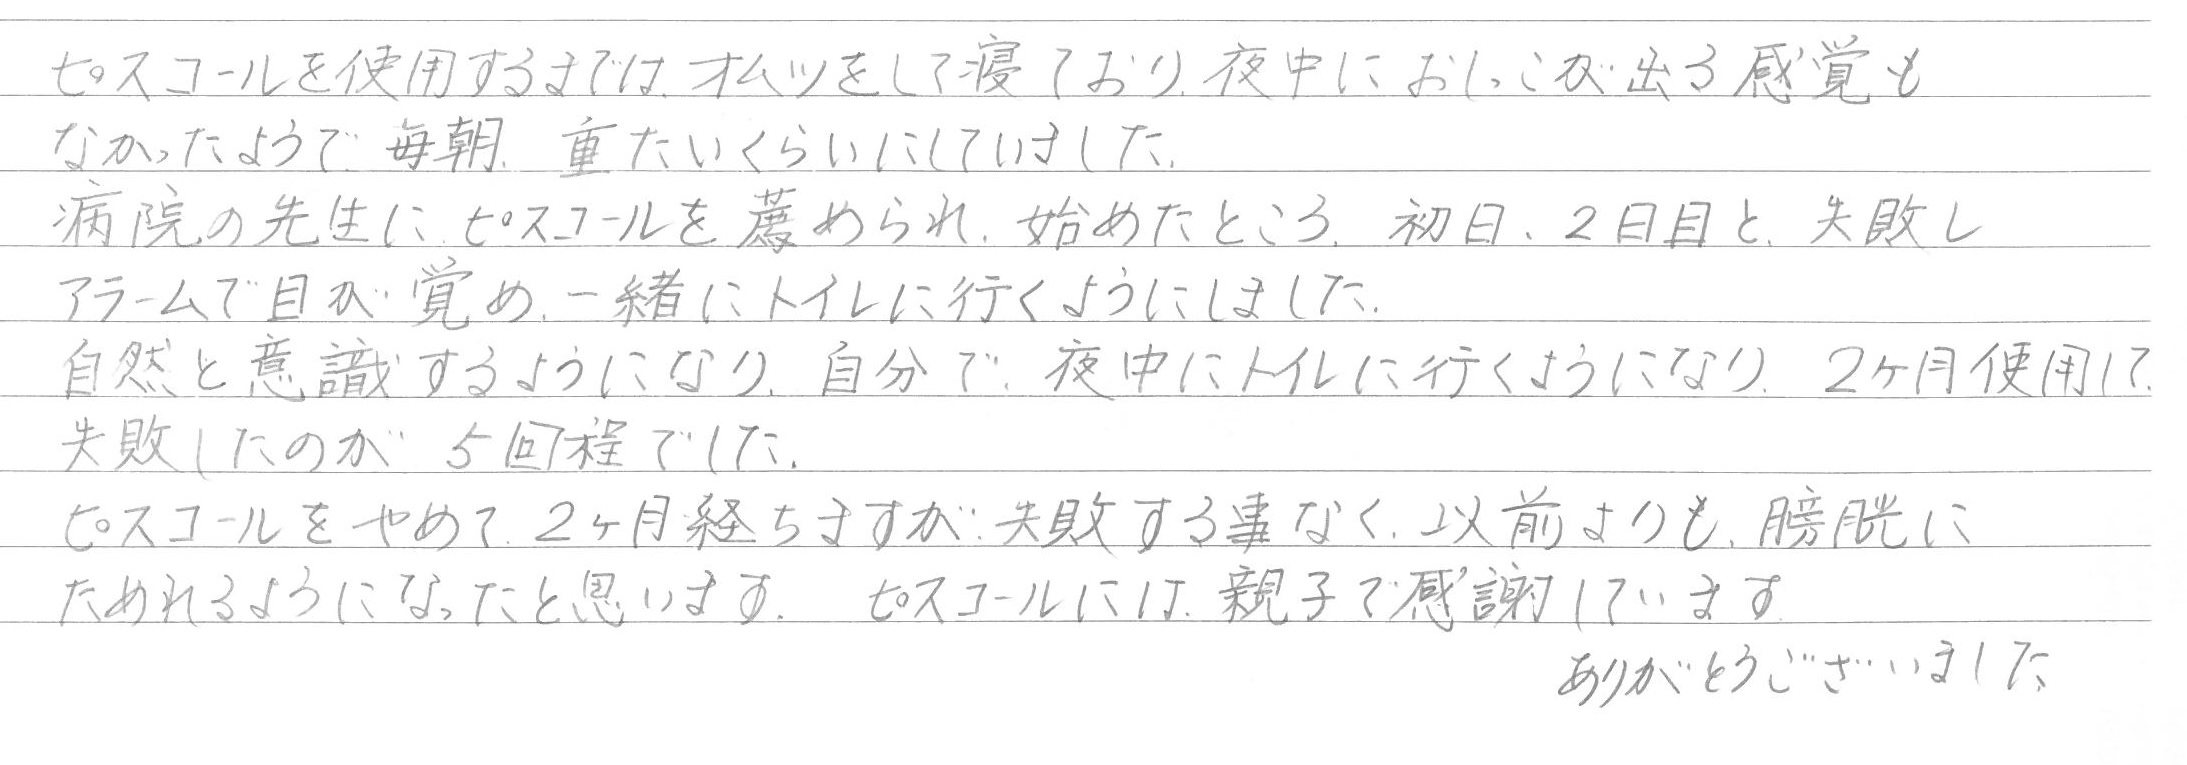 ピスコールを使用するまでは、オムツをして寝ており、夜中におしっこが出る感覚も
なかったようで、毎朝、重たいくらいにしていました。
病院の先生に、ピスコールを薦められ、始めたところ、初日、2日目と、失敗し
アラームで目が覚め、一緒にトイレに行くようにしました。
自然と意識するようになり、自分で、夜中にトイレに行くようになり、2ヶ月使用して、
失敗したのが 5回程でした。
ピスコールをやめて、2ヶ月経ちますが、失敗する事なく、以前よりも、膀胱に
ためれるようになったと思います。 ピスコールには、親子で感謝しています。
ありがとうございました。